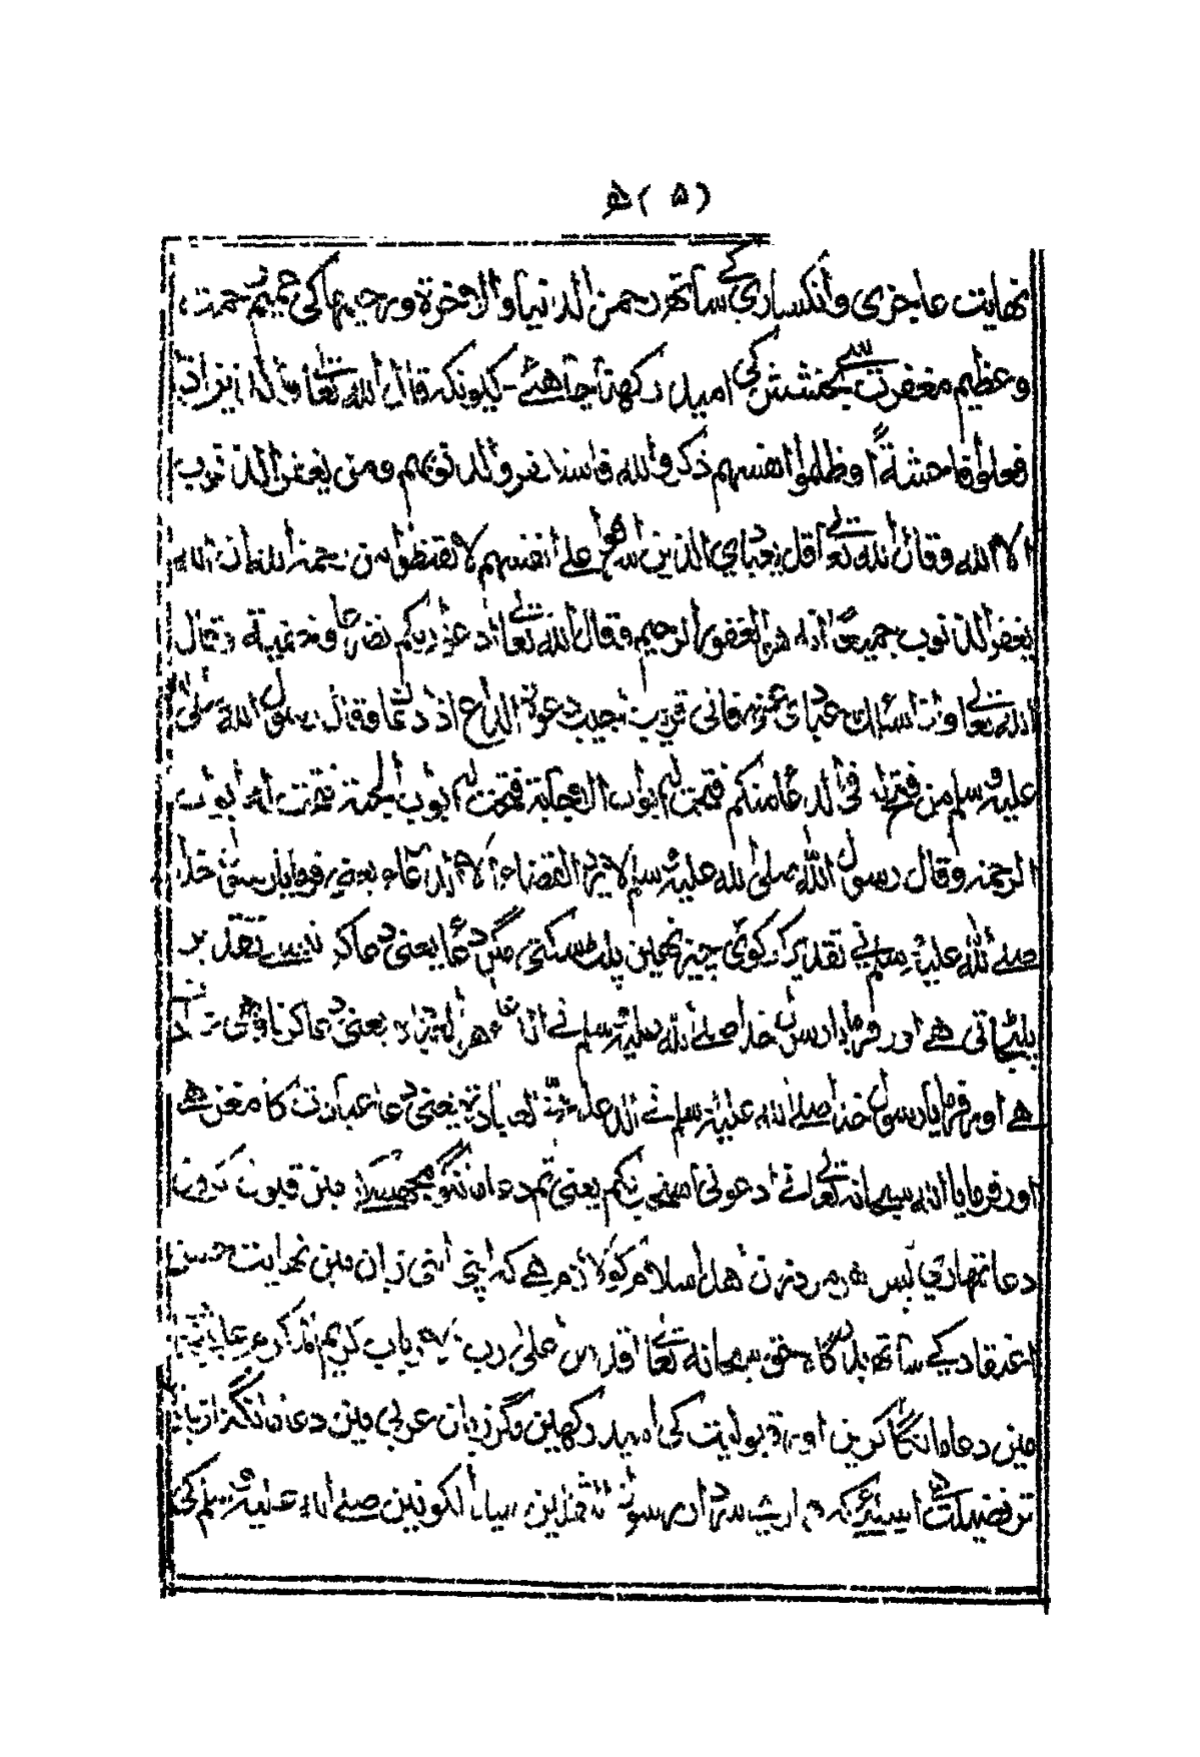 (۵)
نهایت عاجزی وانکساری کے ساتھ رحمن الدنیا والاخرة ورحیمها کی رحمت
وعظیم مغفرت سے بخشش کی امید رکھنا چاهئے - کیونکہ قال الله تعالے والذین اذا
فعلوا فاحشة او ظلموا انفسهم ذکروالله فاستغفروالذنوبهم ومن یغفرالذنوب
الا الله وقال الله تعالے قل یعبادی الذین اسرفوا علے انفسهم لا تقنطوا من رحمة الله ان الله
یغفرالذنوب جمیعا انه هوالغفورالرحیم وقال الله تعالے ادعوا ربکم تضرعا وخفیة وقال
الله تعالے واذا سئالک عبادی عنی فانی قریب اجیب دعوة الداع اذا دعان وقال رسول الله صلی
علیه وسلم من فتح له فی الدعا منکم فتحت له ابواب الاجابة فتحت له ابواب الجنة فتحت له ابواب
الرحمة وقال رسول الله صلی لله علیه وسلم لا یرد القضاء الا الدعاء یعنی فرمایا رسول خدا
صلے لله علیه وسلم نے تقدیر کو کوئی چیز نهین پلٹ سکتی مگر دعا یعنی دعا کرنیسے تقدیر
پلٹ جاتی هے اور فرمایا رسول خدا صلے لله علیه وسلم نے الدعاء هوالعبادة یعنی دعا کرنا
هے اور فرمایا رسول خدا صلے الله علیه وسلم نے الدعاء مخ العبادة یعنی دعا عبادت کا مغز هے
اور فرمایا الله سبحانه تعالے نے ادعونی استجب لکم یعنی تم دعا مانگو مجهسے مین قبول کرون
دعا تمهاری پس هر مرد وزن اهل اسلام کو لازم هے که اپنی اپنی زبان مین نهایت حسن
اعتقاد کے ساتھ بدرگاه حق سبحانه تعالے اقدس اعلی رب کریم
مین دعا مانگا کرین اور قبولیت کی امید رکهین مگر زبان عربی مین دعا مانگنا
تو فضیلت رسول الثقلین سید الکونین صلے الله علیه وسلم کی